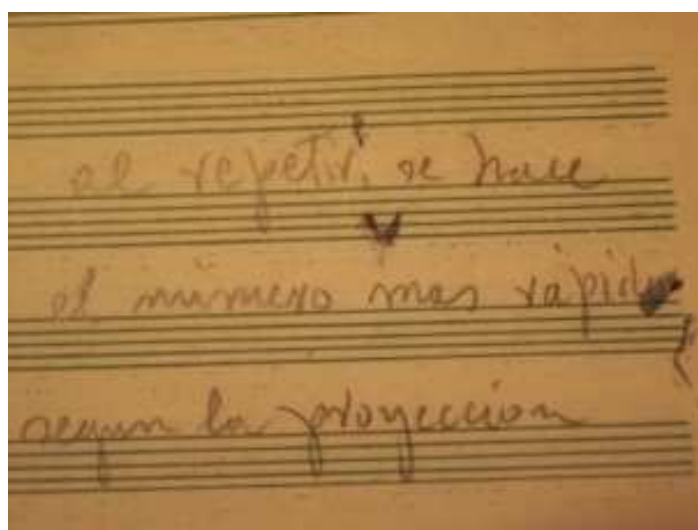 al repetir, se hace
el numero mas rápido
segun la proyeccion